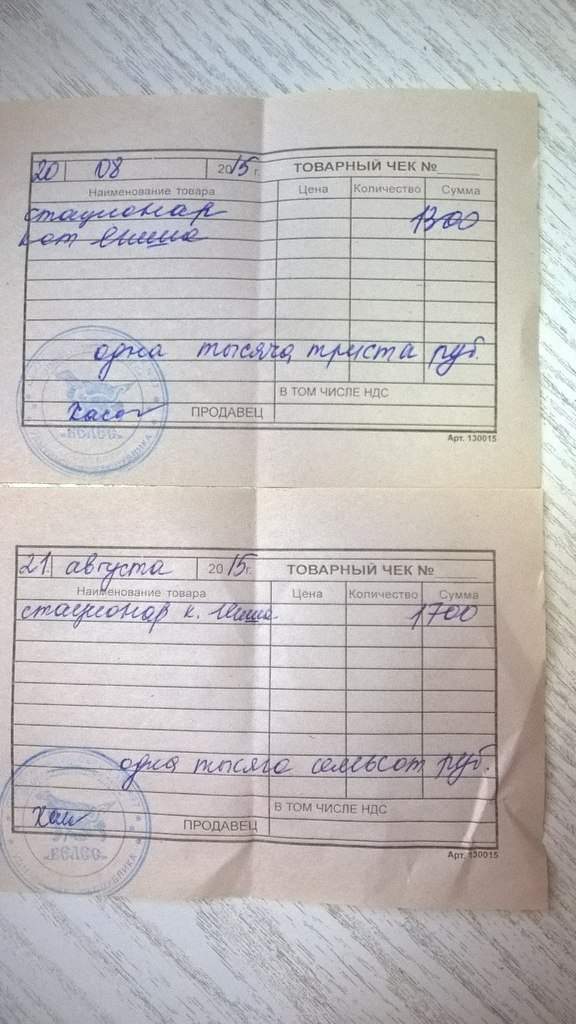 20 08 2015 г. ТОВАРНЫЙ ЧЕК №
Наименование товара Цена Количество Сумма
стационар 1300
кот
одна тысяча триста руб.
В ТОМ ЧИСЛЕ НДС
ПРОДАВЕЦ
"ВЕЛЕС"
Арт. 130015
21 августа 2015 г. ТОВАРНЫЙ ЧЕК №
Наименование товара Цена Количество Сумма
стационар к. 1700
одна тысяча семьсот руб.
В ТОМ ЧИСЛЕ НДС
ПРОДАВЕЦ
"ВЕЛЕС"
РЕСПУБЛИКА
Арт. 130015